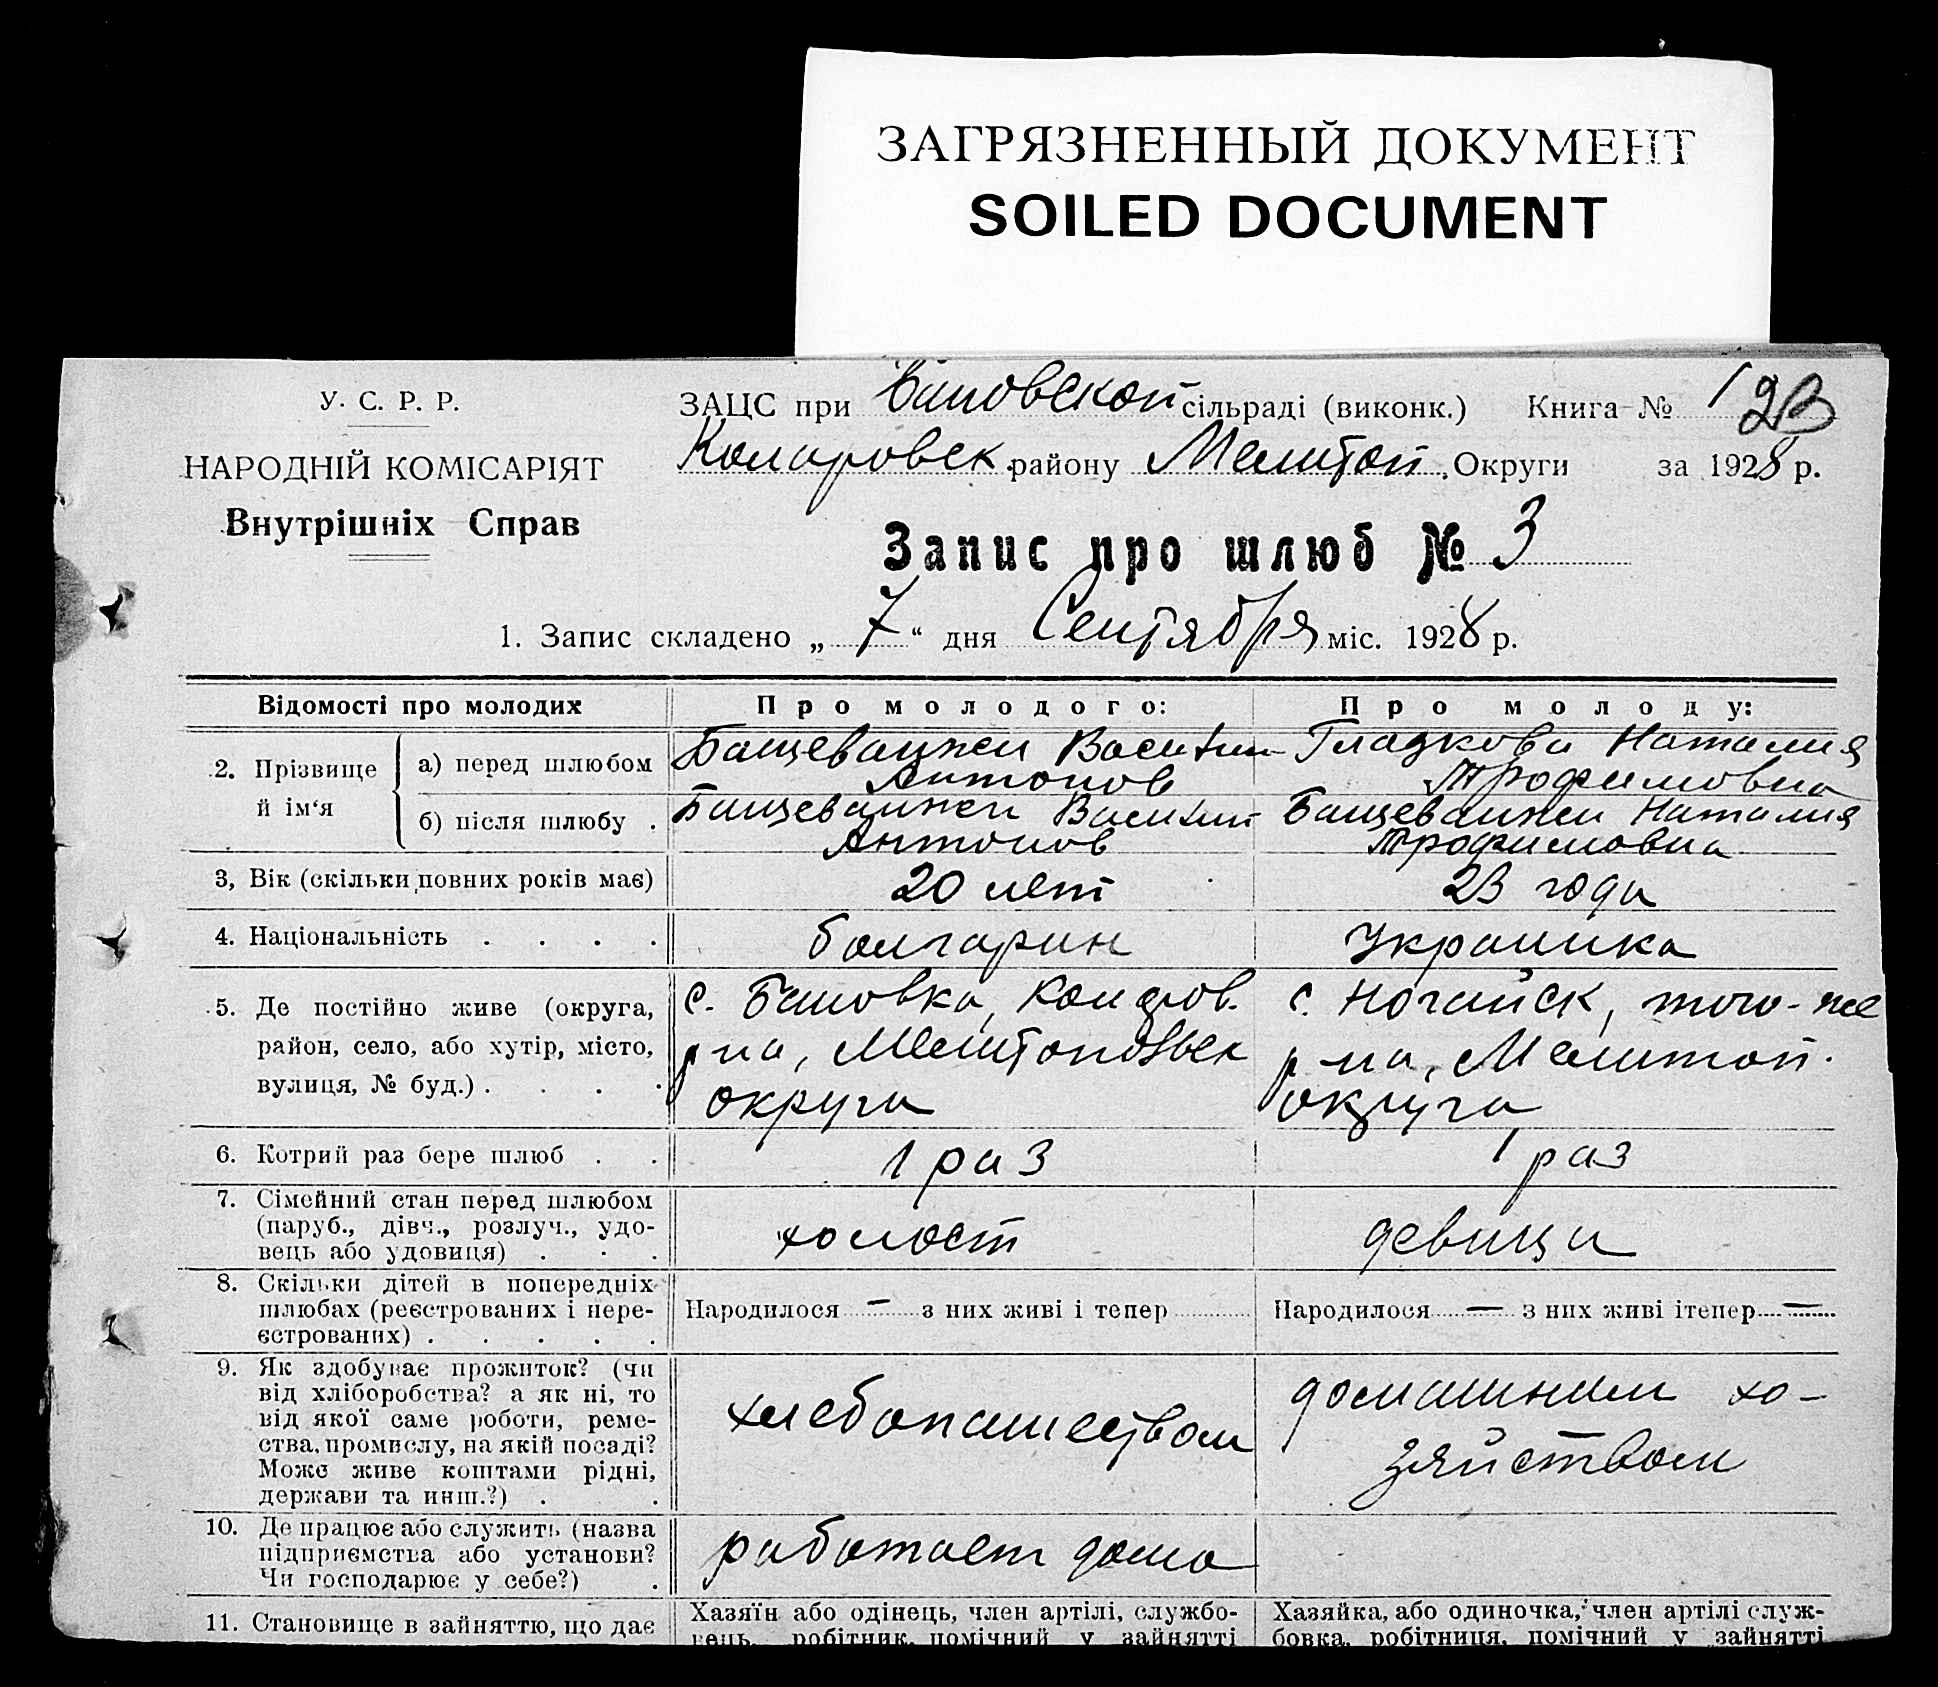 ЗАГРЯЗНЕННЫЙ ДОКУМЕНТ
SOILED DOCUMENT
У. С. Р. Р.
НАРОДНІЙ КОМІСАРІЯТ
Внутрішніх Справ
ЗАЦС при Бановской сільраді (виконк.) Книга № 1 23
Коларовск. району Мелитоп. Округи за 1928 р.
Запис про шлюб № 3
1. Запис складено „ 7 “ дня Сентября міс. 1928 р.
Відомості про молодих Про молодого: Про молоду:
2. Прізвище й ім‘я
а) перед шлюбом
Бащеванжи Василий Антонов
Гладкова Наталия Трофимовна
б) після шлюбу .
Бащеванжи Василий Антонов
Бащеванжи Наталия Трофимовна
3, Вік (скільки повних років має) 20 лет 23 года
4. Національність . . . . болгарин украинка
5. Де постійно живе (округа,
район, село, або хутір, місто,
вулиця, № буд.) . . . .
с. Бановка, Коларов.
р-на, Мелитопольск
округа
с. Ногайск, того-же
р-на, Мелитоп.
округа
6. Котрий раз бере шлюб . . 1 раз 1 раз
7. Сімейний стан перед шлюбом
(паруб., дівч., розлуч., удо-
вець або удовиця) . . .
холост
девица
8. Скільки дітей в попередніх
шлюбах (реєстрованих і пере-
єстрованих) . . . . .
Народилося — з них живі і тепер
Народилося — з них живі ітепер —
9. Як здобуває прожиток? (чи
від хліборобства? а як ні, то
від якої саме роботи, реме-
ства, промислу, на якій посаді?
Може живе коштами рідні,
держави та инш.?) . .
хлебопашеством
домашним хо-
зяйством
10. Де працює або служить (назва
підприємства або установи?
Чи господарює у себе?) .
работает дома
11. Становище в зайняттю, що дає
Хазяїн або одінець, член артілі, службо-
вець, робітник, помічний у зайнятті
Хазяйка, або одиночка, член артілі служ-
бовка, робітниця, помічний у зайнятті